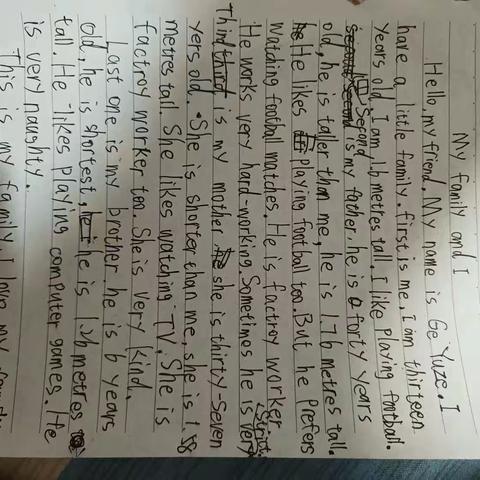 My family and I
Hello, my friend. My name is Ge Yuze. I
have a little family. first is me, I am thirteen
years old. I am 1.6 metres tall. I like playing football.
Second is my facher he is forty years
old, he is taller than me, he is 1.76 metres tall.
He likes playing football too. But he prefers
watching football matches. He is factroy worker
He works very hard-working. Sometimes he is very strict.
Third is my mother she is thirty-seven
yers old. She is shorter than me, she is 1.58
metres tall. She likes watching TV. She is
factroy worker too. She is very kind.
Last one is my brother he is 6 years
old, he is shortest, he is 1.26 metres
tall. He likes playing computer games. He
is very naughty.
This is my family I love my